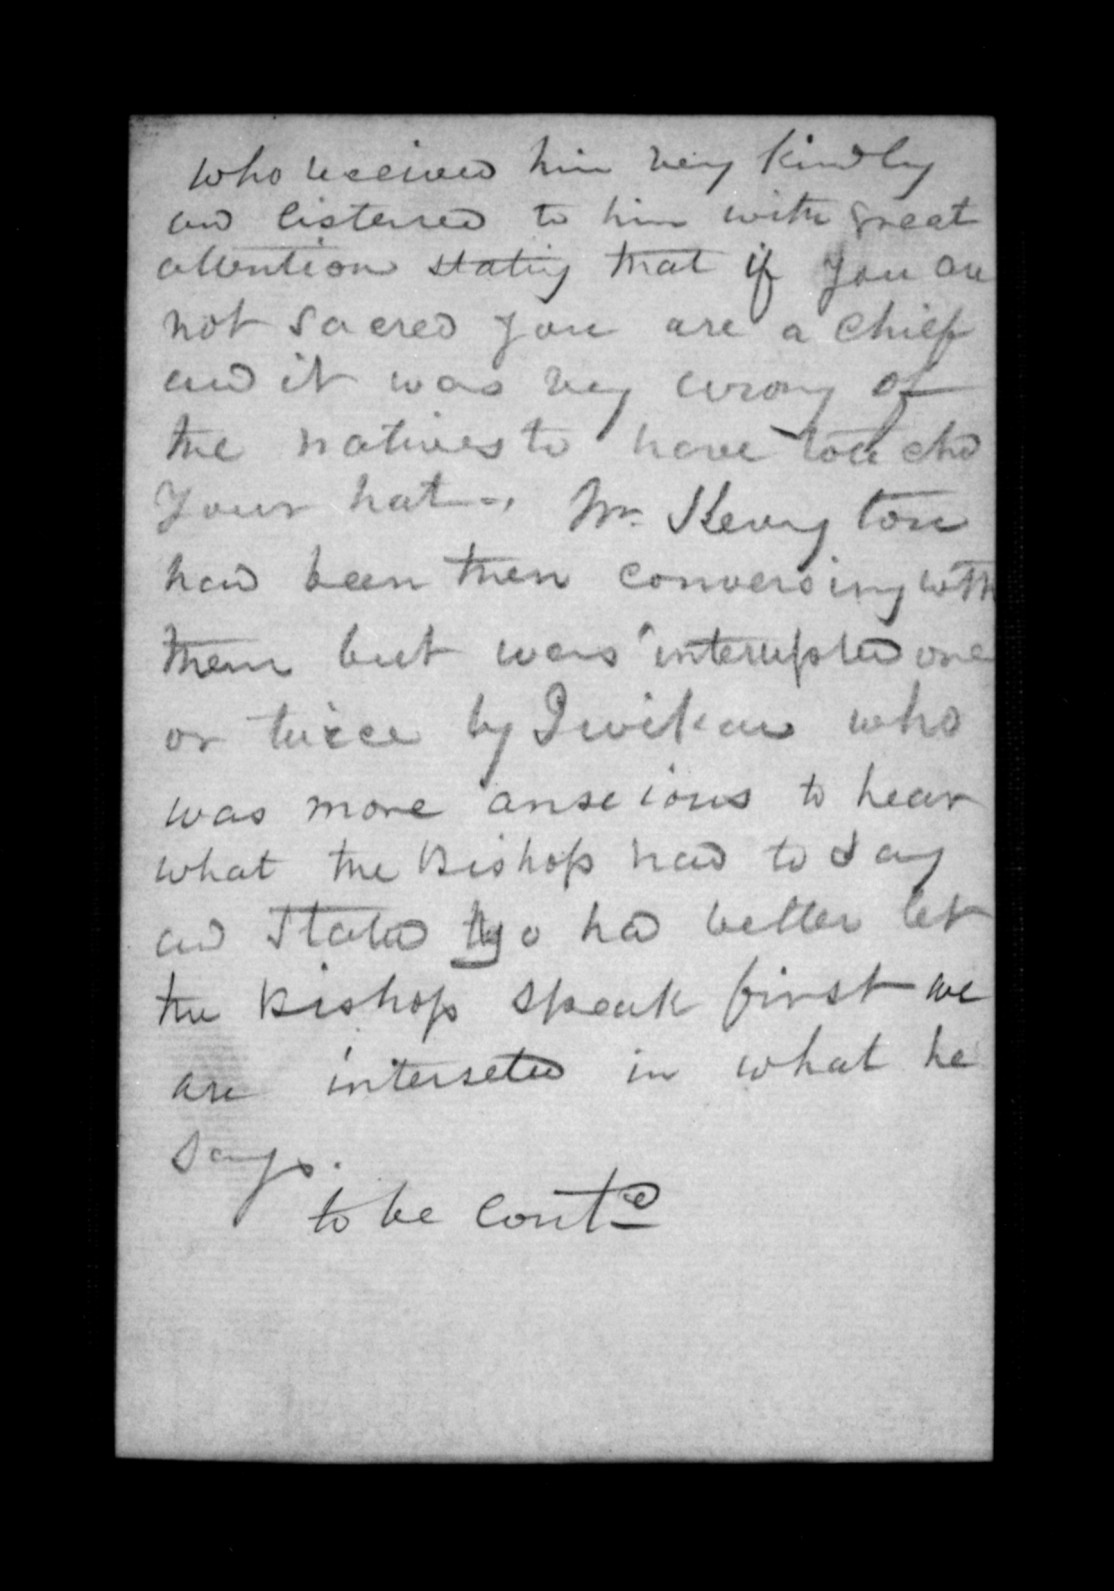 who received him very kindly
and listened to him with great
attention stating that if you are
not sacred you are a chief
and it was very wrong of
the natives to have touchd
your hat -, Mr.
had been then conversing with
them but was interrupted one
or twice by who
was more anscious to hear
what the Bishop had to say
and stated had better let
the Bishop speak first we
are interseted in what he
says.
to be Contd